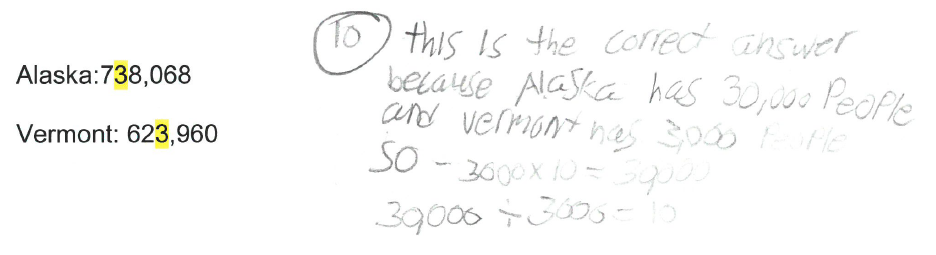 Alaska:738,068
Vermont: 623,960
10 this is the correct answer
because Alaska has 30,000 People
and vermont has 3,000 People
So - 3000 x 10 = 30,000
30,000 ÷ 3000 = 10